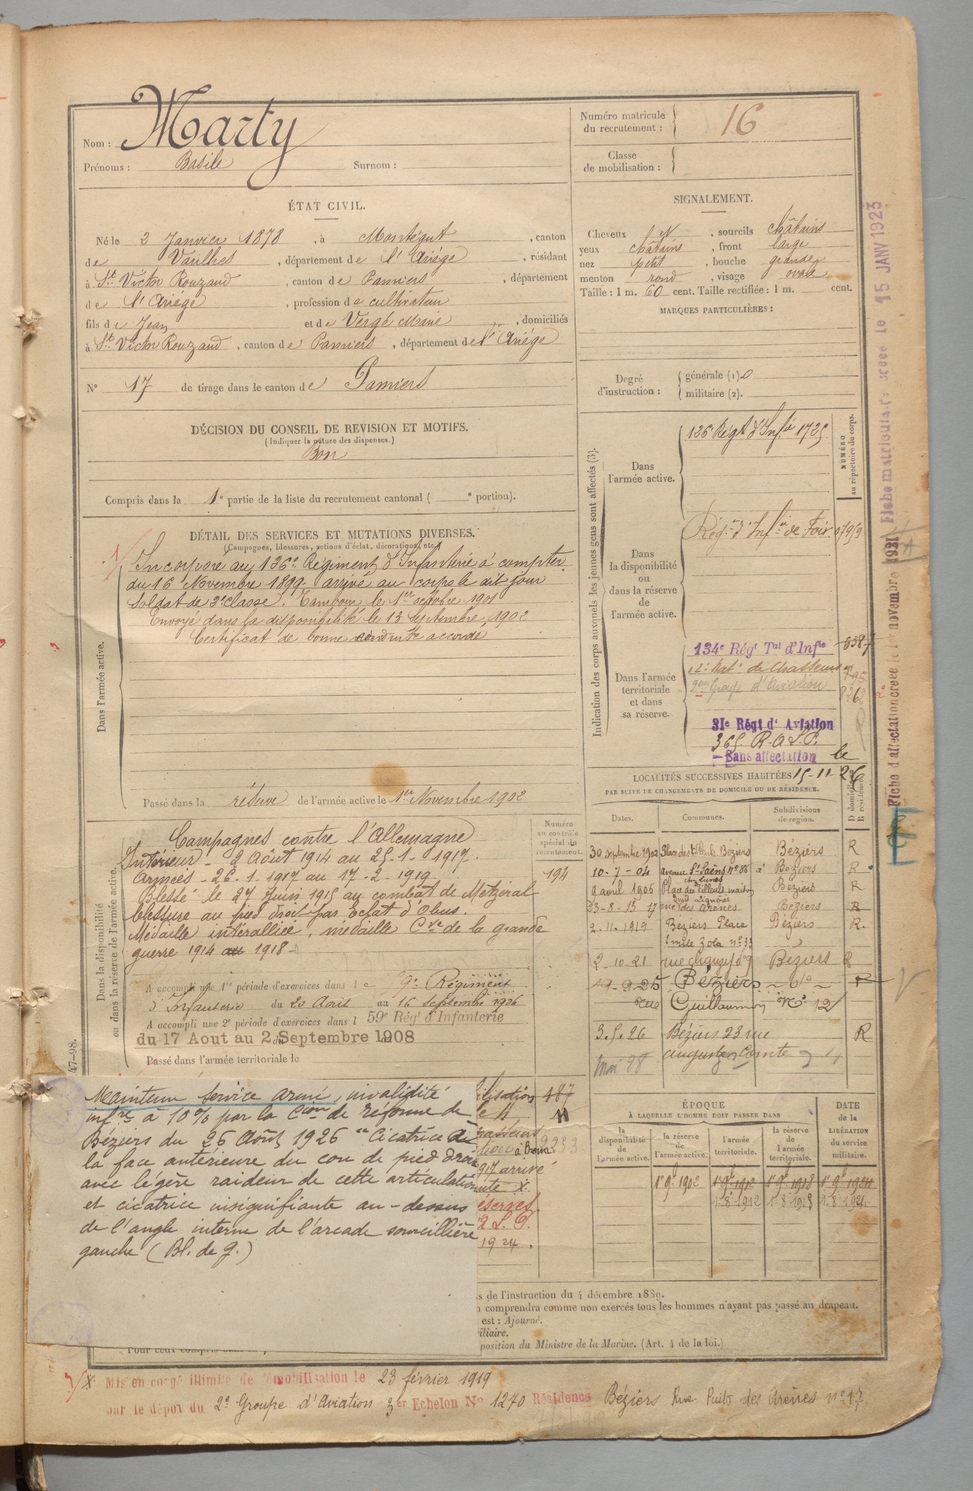 Nom : Marty
Prénoms : Basile Surnom :
Numéro matricule
du recrutement : 16
Classe
de mobilisation :
ÉTAT CIVIL.
Né le 2 Janvier 1878, à Montégut, canton
de Varilhes, département de l'Ariège, résidant
à St Victor Rouzaud, canton de Pamiers, département
de l'Ariège, profession de cultivateur
fils de Jean et de Vergé Marie, domiciliés
à St Victor Rouzaud, canton de Pamiers, département de l'Ariège
N° 17 de tirage dans le canton de Pamiers
DÉCISION DU CONSEIL DE REVISION ET MOTIFS.
(Indiquer la nature des dispenses.)
Bon
Compris dans la 1e partie de la liste du recrutement cantonal ( e portion).
DÉTAIL DES SERVICES ET MUTATIONS DIVERSES.
(Campagnes, blessures, actions d'éclat, décorations, etc.)
Dans l'armée active.
Incorporé au 126e Régiment d'Infanterie à compter
du 16 Novembre 1899 arrivé au corps le dit jour
Soldat de 2e classe. Tambour le 1er octobre 1901
Envoyé dans la disponibilité le 13 Septembre 1902
Certificat de bonne conduite accordé
Passé dans la réserve de l'armée active le 1er Novembre 1902
Dans la disponibilité
ou dans la réserve de l'armée active.
Numéro
au contrôle
spécial du
recrutement.
194
Campagnes contre l'Allemagne
Intérieur 2 Août 1914 au 25-1-1917.
Armées - 26-1-1917 au 17-2-1919
Blessé le 27 Juin 1915 au combat de Metzeral
blessure au pied droit par éclat d'obus.
Médaille interalliée, médaille Cve de la grande
guerre 1914 au 1918
A accompli une 1re période d'exercices dans le 9e Régiment
d'Infanterie du 20 Août au 16 Septembre 1906
A accompli une 2e période d'exercices dans l 59e Régt d'Infanterie
du 17 Aout au 2 Septembre 1908
Passé dans l'armée territoriale le
47-98.
Maintenu Service armé, invalidité
infre à 10% par la Cion de réforme de
Béziers du 26 Août 1926 "Cicatrice de
la face antérieure du cou de pied droit
avec légère raideur de cette articulation
et cicatrice insignifiante au-dessus
de l'angle interne de l'arcade sourcillière
gauche (Bl. de g.)
ilisation 487
1917 arrivé
1924.
SIGNALEMENT.
Cheveux, sourcils châtains
yeux châtains, front large
nez petit, bouche grande
menton rond, visage ovale
Taille : 1 m. 60 cent. Taille rectifiée : 1 m. cent.
MARQUES PARTICULIÈRES :
Degré
d'instruction :
générale (1) 0
militaire (2).
Indication des corps auxquels les jeunes gens sont affectés (3).
NUMÉRO
au répertoire du corps.
Dans
l'armée active.
126e Régt d'Infie 1725
Dans
la disponibilité
ou
dans la réserve
de
l'armée active.
Régt d'Infie de Foix
Dans l'armée
territoriale
et dans
sa réserve.
134e Régt Tal d'Infie
2me Groupe d'aviation
31e Régt d'Aviation
Sans affectation le
15-11-26
LOCALITÉS SUCCESSIVES HABITÉES
PAR SUITE DE CHANGEMENTS DE DOMICILE OU DE RÉSIDENCE.
Dates. Communes. Subdivisions
de région. D domicile
R résidence.
30 septembre 1902 Béziers Béziers R
10-7-04 avenue St Saëns N° 86 à Béziers R
9 avril 1906 Béziers R
23-8-13 17 rue des Arènes Béziers R
2.11.1919 Béziers Place Béziers R.
Emile Zola n° 33
2-10-21 Béziers R
Béziers
rue Guillaumin N° 12
3.5.26 Béziers 23 rue R
auguste Comte
Mai 28
ÉPOQUE
À LAQUELLE L'HOMME DOIT PASSER DANS
DATE
de la
LIBÉRATION
du service
militaire.
la
disponibilité
de
l'armée active.
la réserve
de
l'armée active.
l'armée
territoriale.
la réserve
de
l'armée
territoriale.
1er 9bre 1902 1er 9bre 1912 1er 9bre 1918 1er 9bre 1924
s de l'instruction du 4 décembre 1889.
n comprendra comme non exercés tous les hommes n'ayant pas passé au drapeau.
est : Ajourné.
iliaire.
position du Ministre de la Marine. (Art. 4 de la loi.)
X Mis en congé illimité de démobilisation le 23 février 1919
par le dépôt du 2e Groupe d'Aviation 3er Echelon N° 1270 Résidence Béziers Rue Puits des Arènes n° 17
Fiche matriculaire créée le 15 JANV 1923
Fiche d'affectation créée le 1er novembre 1921